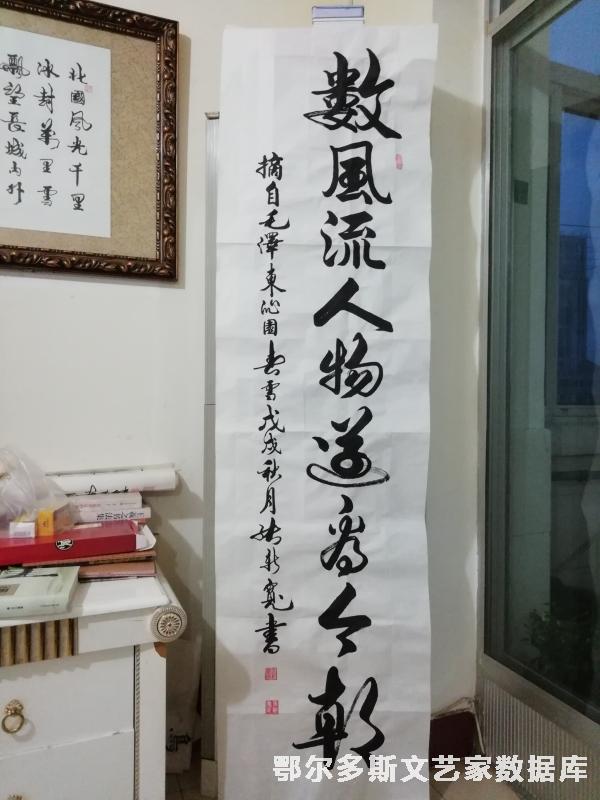 北國風光千里
冰封萬里雪
飄望長城内外
數風流人物還看今朝
摘自毛澤東沁園春雪戊戌秋月新寬書
鄂尔多斯文艺家数据库